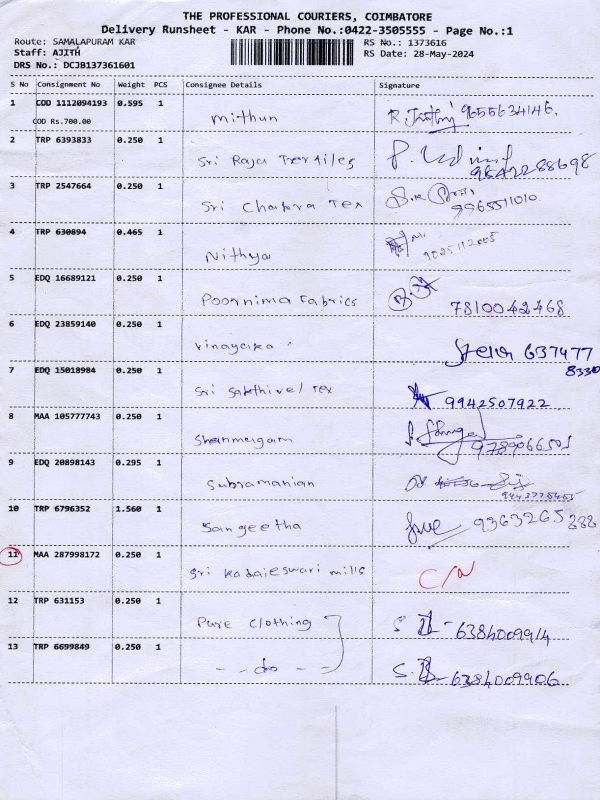 THE PROFESSIONAL COURIERS, COIMBATORE
Delivery Runsheet - KAR - Phone No.:0422-3505555 - Page No.:1
Route: SAMALAPURAM KAR
Staff: AJITH
DRS No.: DCJB137361601
RS No.: 1373616
RS Date: 28-May-2024
S No Consignment No Weight PCS Consignee Details Signature
1 COD 1112094193 0.595 1 Mithun 9655634146.
COD Rs.700.00
2 TRP 6393833 0.250 1 Sri Raja Textiles
3 TRP 2547664 0.250 1 Sri Chakra Tex 9965511010
4 TRP 630894 0.465 1 Nithya
5 EDQ 16689121 0.250 1 Poornima Fabrics 7810042468
6 EDQ 23859140 0.250 1 Vinayaka 637477
8330
7 EDQ 15018984 0.250 1 Sri Sakthivel Tex 9942507922
8 MAA 105777743 0.250 1 Shanmugam
9 EDQ 20898143 0.295 1 Subramanian
10 TRP 6796352 1.560 1 Sangeetha 9363265888
11 MAA 287998172 0.250 1 Sri Kadaieswari mills C/N
12 TRP 631153 0.250 1 Pure Clothing 6384009914
13 TRP 6699849 0.250 1 - - do - - 6384009906